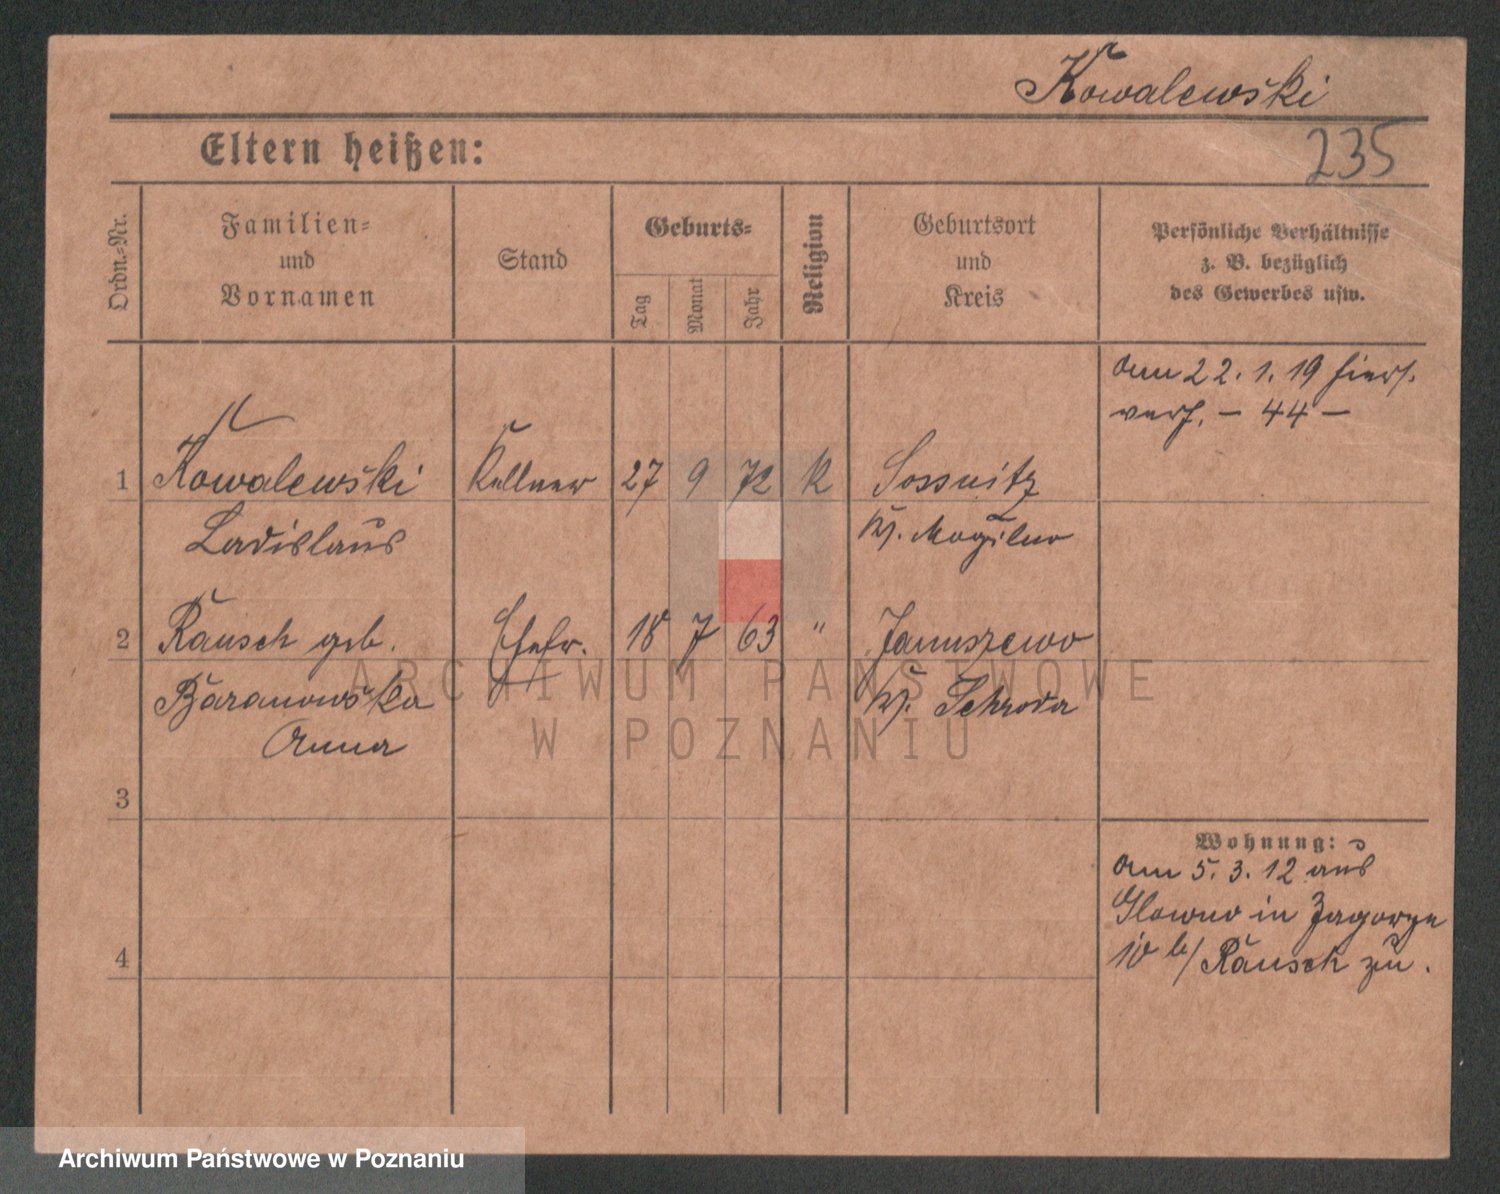 Kowalewski
235
Eltern heißen:
Ordn.-Nr.
Familien-
und
Vornamen
Stand
Geburts-
Tag
Monat
Jahr
Religion
Geburtsort
und
Kreis
Persönliche Verhältnisse
z. B. bezüglich
des Gewerbes usw.
am 22. 1. 19 hiers.
verh. – 44 –
1 Kowalewski Kellner 27 9 72 K Sossnitz
Ladislaus Kr. Mogilno
2 Rausch geb. Ehefr. 18 7 63 " Januszewo
Baranowska Kr. Schroda
Anna
3
Wohnung:
am 5. 3. 12 aus
Glowno in Zagorze
10 b/ Rausch zu.
4
ARCHIWUM PAŃSTWOWE
W POZNANIU
Archiwum Państwowe w Poznaniu